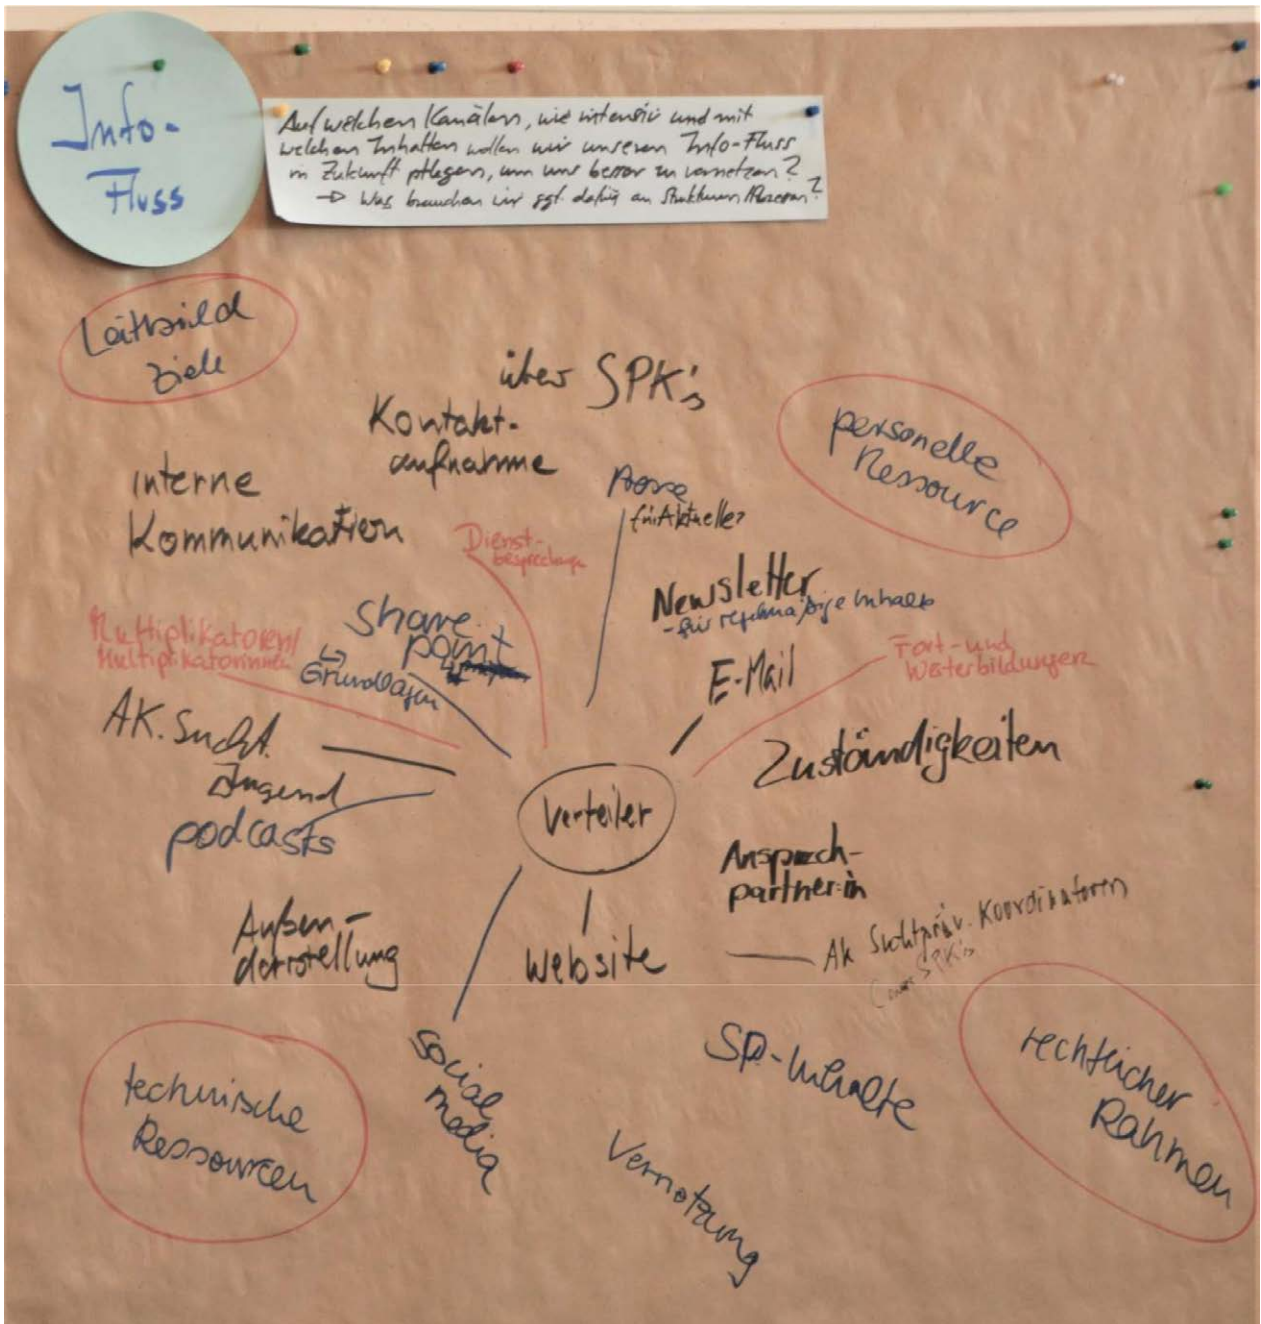 Info-
Fluss
Auf welchen Kanälen, wie intensiv und mit
welchen Inhalten wollen wir unseren Info-Fluss
in Zukunft pflegen, um uns besser zu vernetzen?
→ Was brauchen wir ggf. dafür an Strukturen/Prozessen?
Leitbild
Ziele
über SPK's
Kontakt-
aufnahme
personelle
Ressource
interne
Kommunikation
Presse
für Aktuelles
Dienst-
besprechungen
Newsletter
- für regelmäßige Inhalte
Share
point
↳ Grundlagen
Multiplikatoren/
Multiplikatorinnen
E-Mail
Fort- und
Weiterbildungen
AK. Sucht.
Jugend
Zuständigkeiten
podcasts
Verteiler
Ansprech-
partner:in
Außen-
darstellung
Website
AK Suchtpräv. Koordinatoren
SPK's
social
media
SP-Inhalte
rechtlicher
Rahmen
technische
Ressourcen
Vernetzung